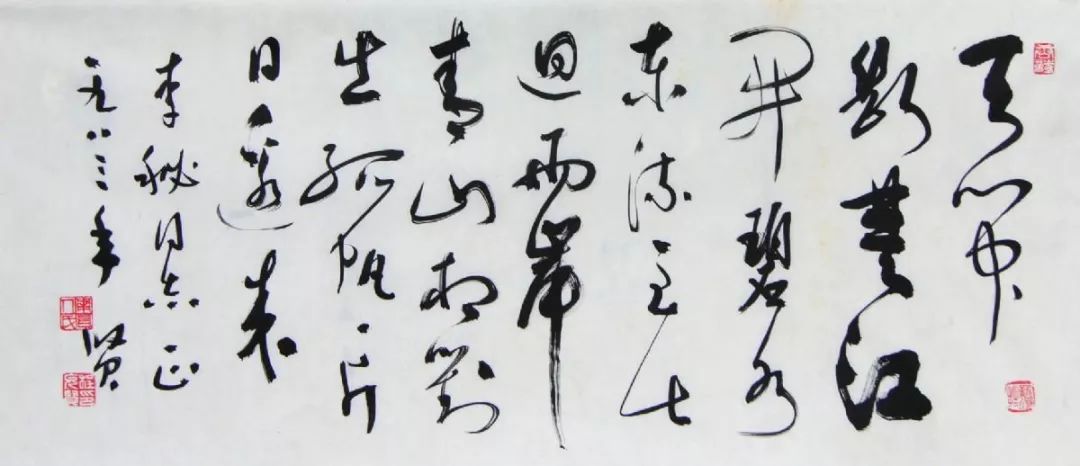 天门中
断楚江
开碧水
东流至此
回两岸
青山相对
出孤帆一片
日边来
李秘同志正
一九八三年 贤